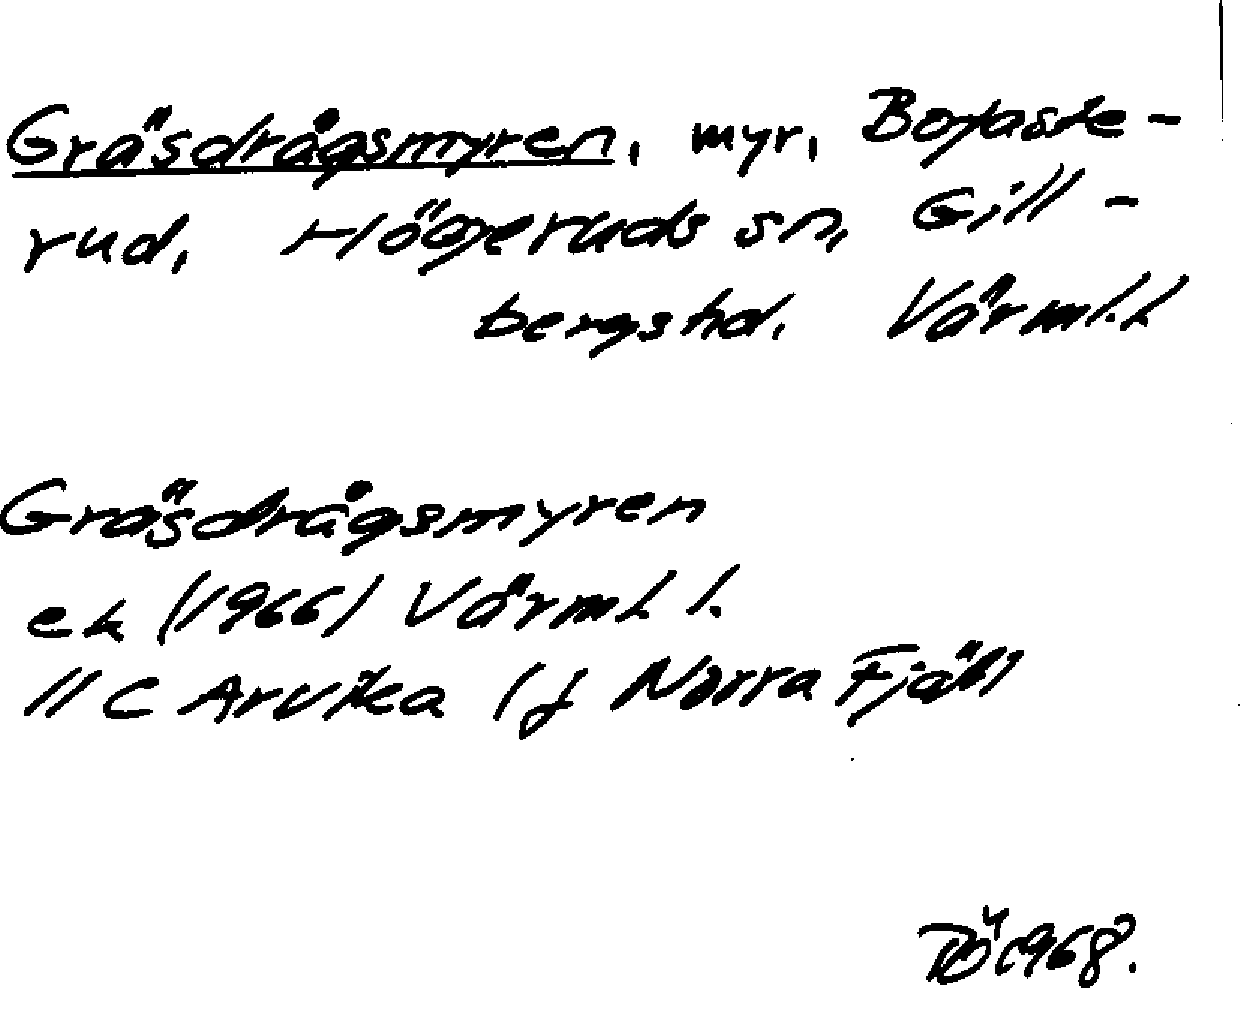 Gräsdrågsmyren, myr, Bojaste-
rud, Högeruds sn, Gill-
bergs hd. Värml. l
Gräsdrågsmyren
ek (1966) Värml l.
11 C Arvika (j Norra Fjäll
RÖ 1968.